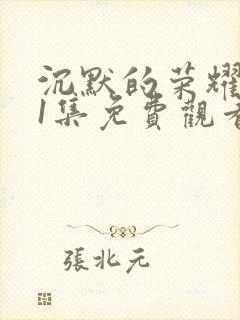 沉默的荣耀
1集免費觀看
張北元